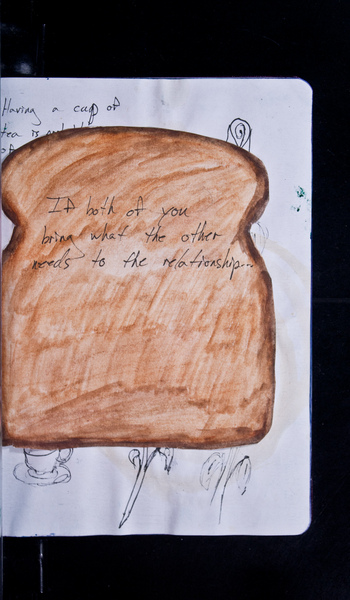 Having a cup of
tea is
of
If both of you
bring what the other
needs to the relationship...